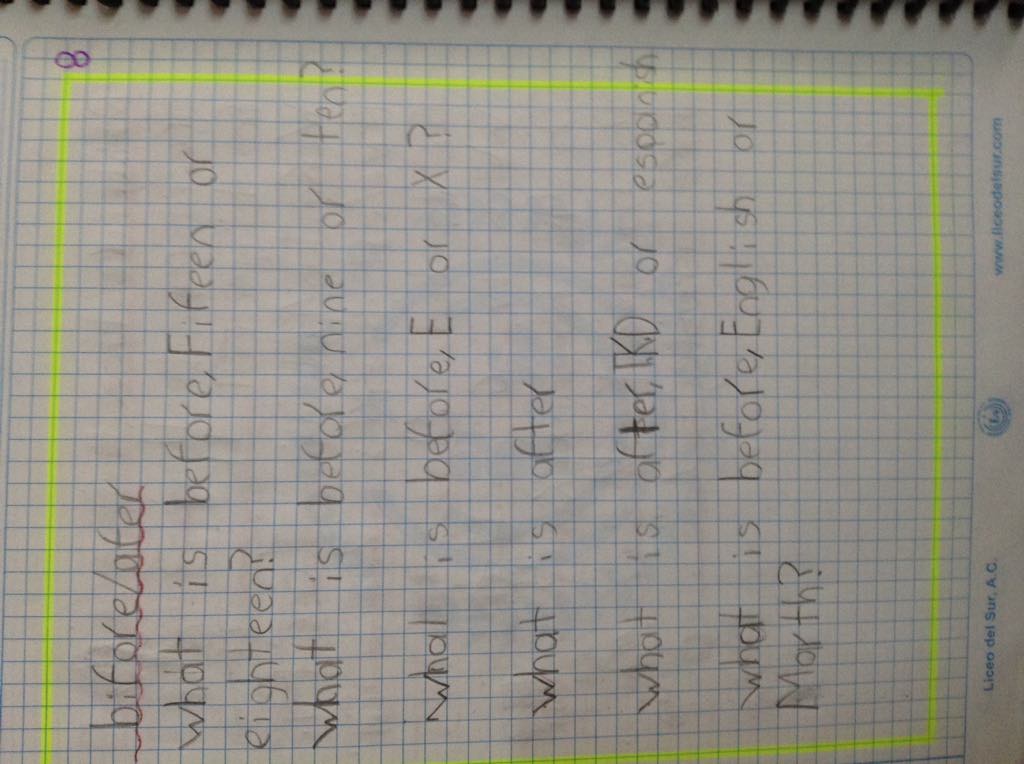 8
biforelater
what is before, Fifteen or
eighteen?
what is before, nine or ten?
what is before, E or X?
what is after
what is after, TKD or espanish
what is before, English or
Marth?
Liceo del Sur, A.C.
www.liceodelsur.com